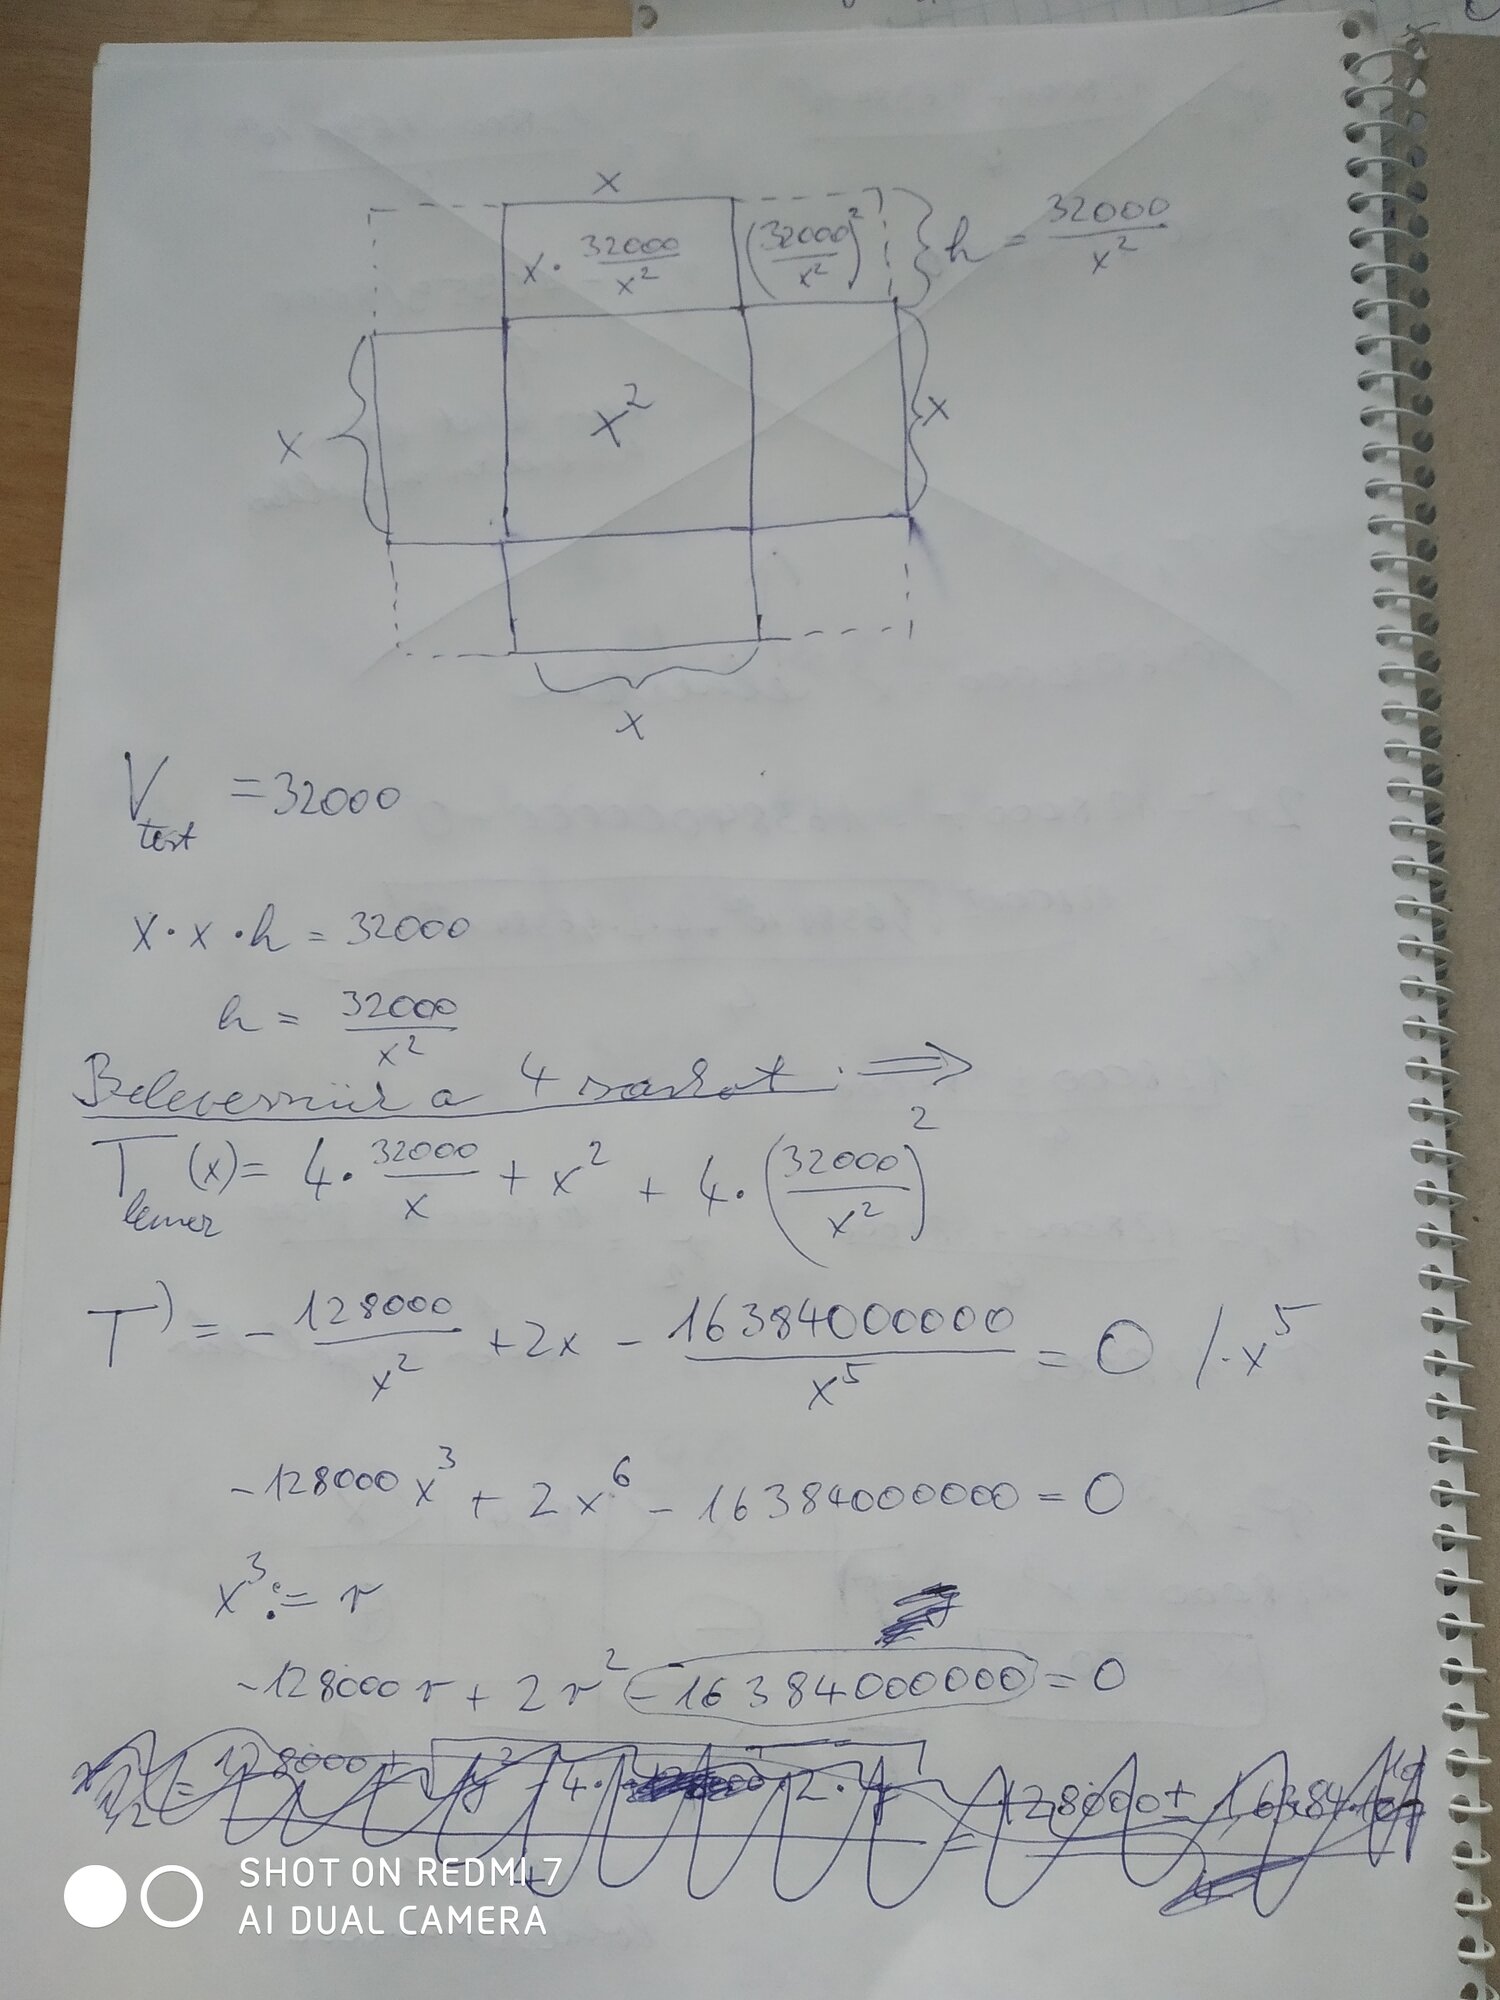 x
x · 32000/x² (32000/x²)² h = 32000/x²
x x² x
x
V_test = 32000
x · x · h = 32000
h = 32000/x²
Belevesszük a 4 sarkot: ⟹
T_lemez (x) = 4 · 32000/x + x² + 4 · (32000/x²)²
T' = - 128000/x² + 2x - 16384000000/x⁵ = 0 /·x⁵
-128000x³ + 2x⁶ - 16384000000 = 0
x³ := r
-128000r + 2r² - 16384000000 = 0
SHOT ON REDMI 7
AI DUAL CAMERA